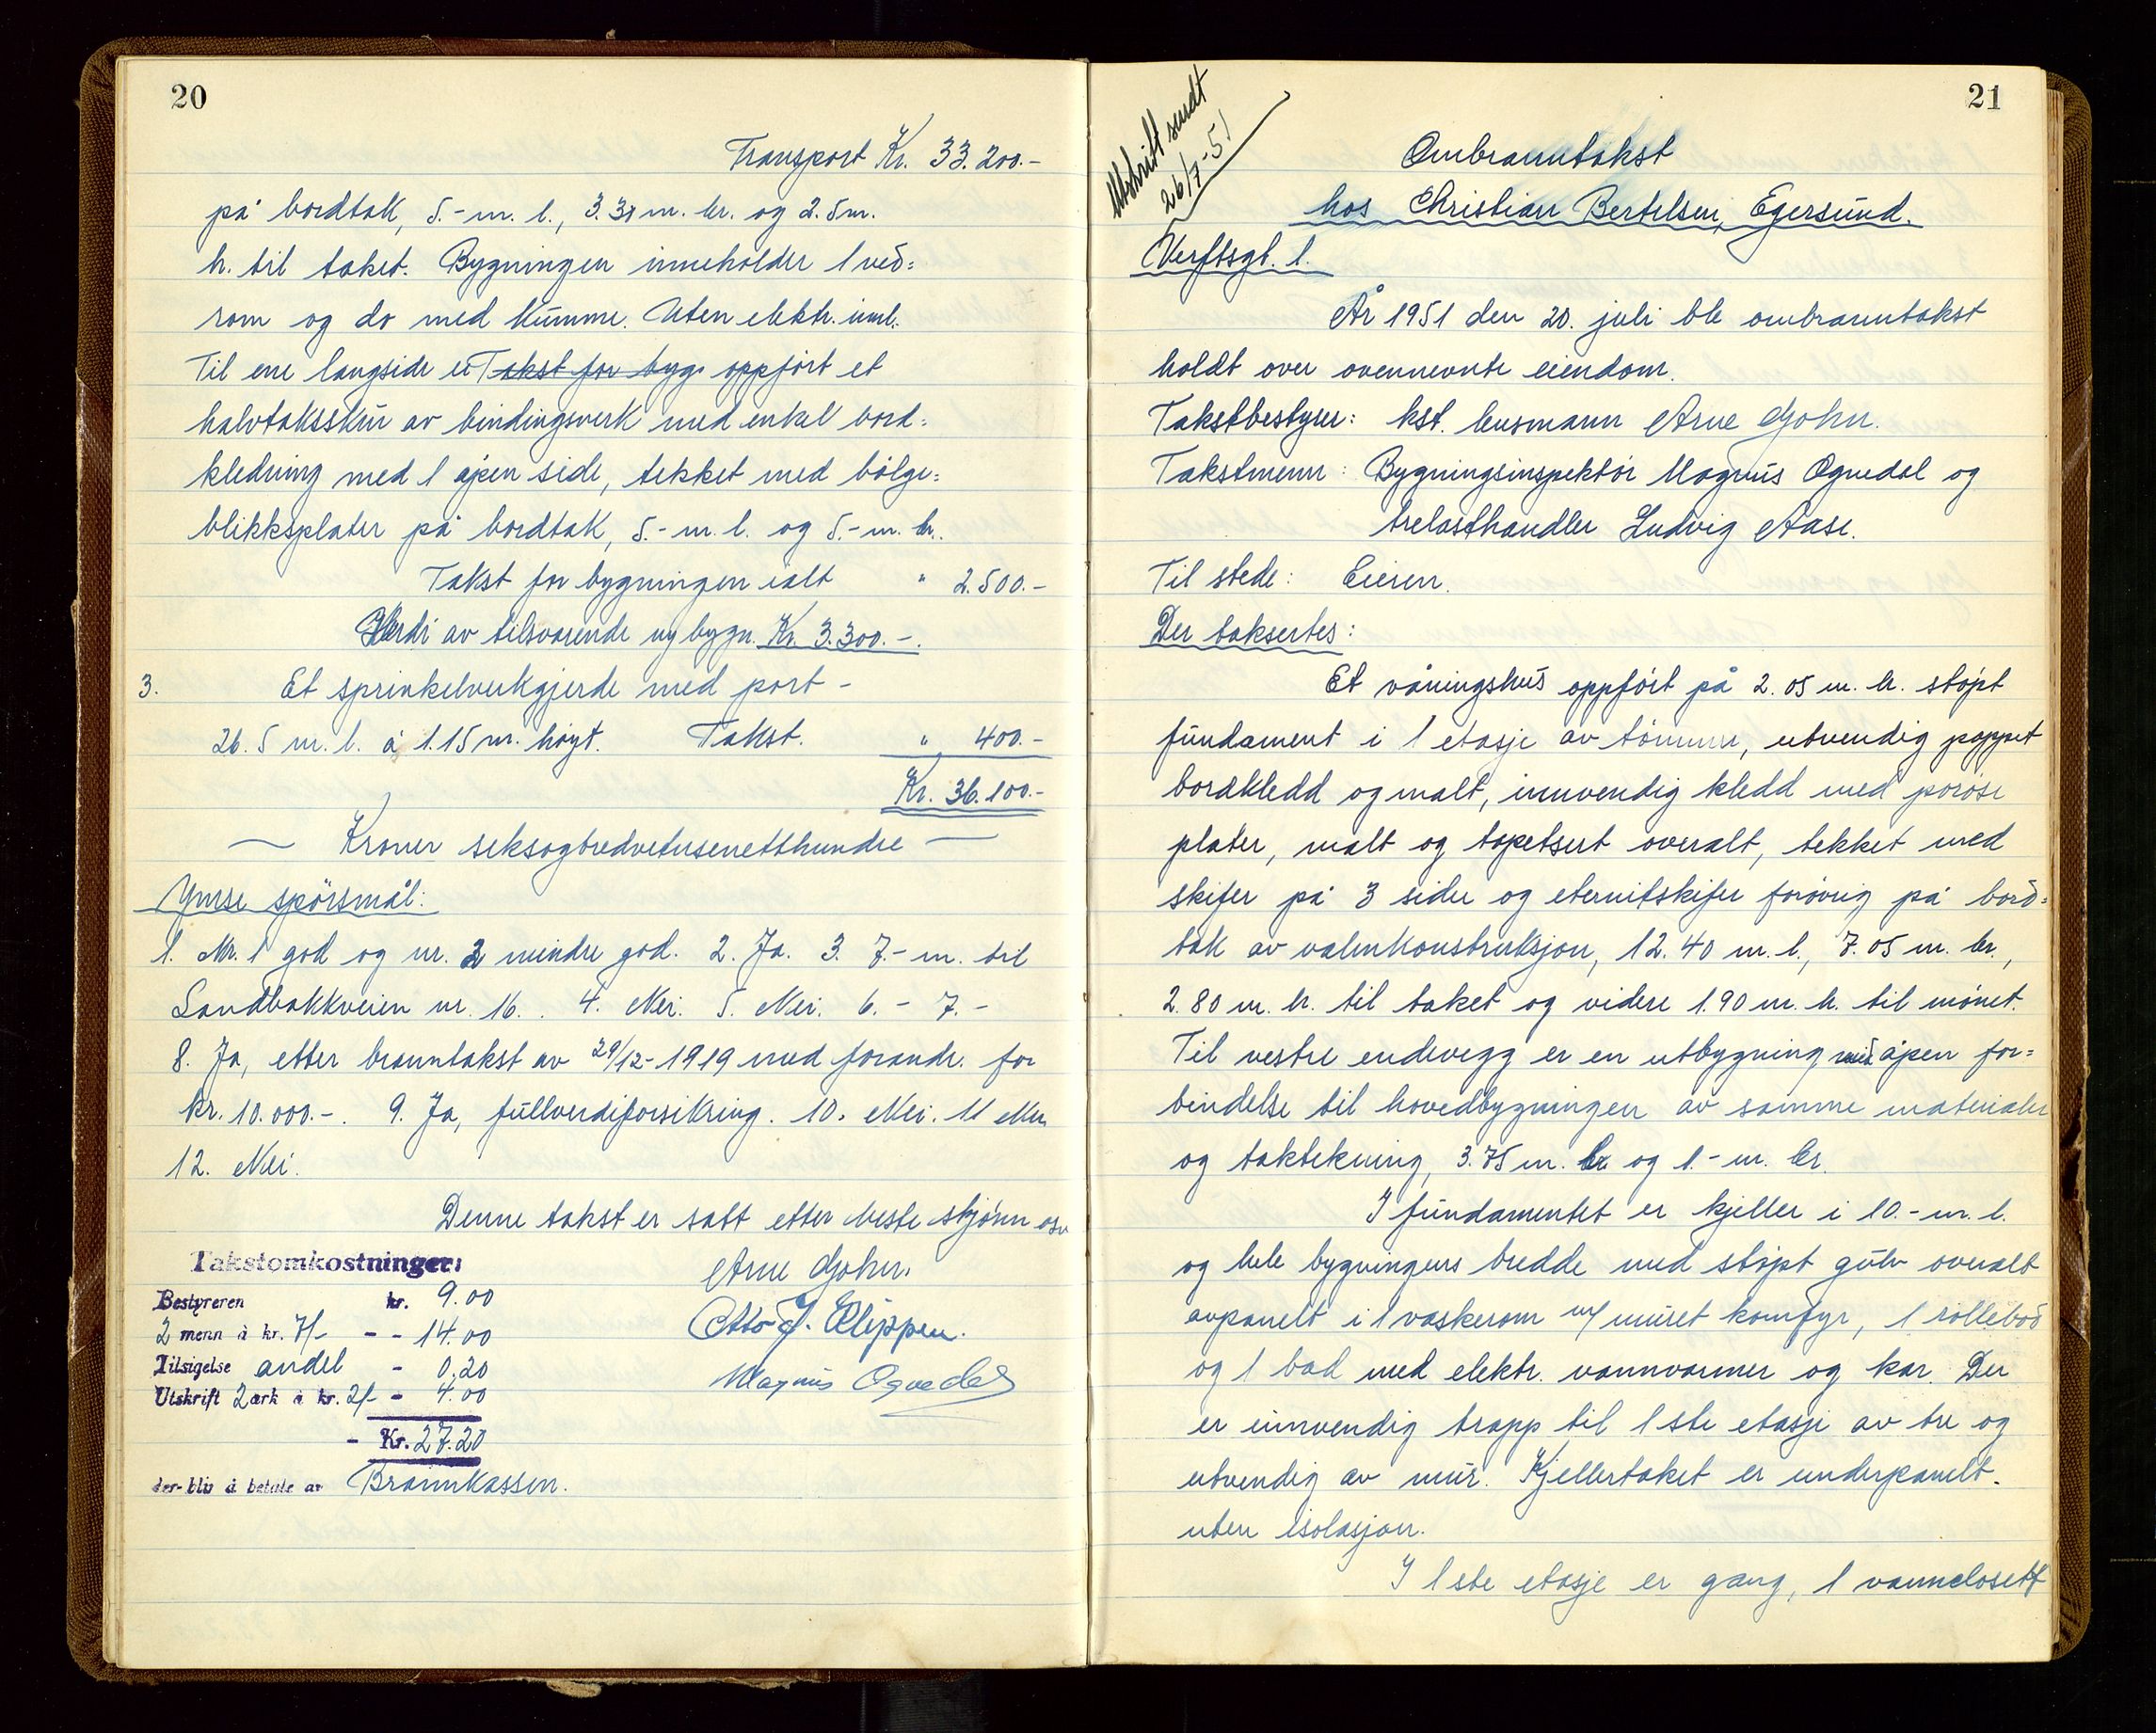 20
Transport Kr. 33.200.-
på bordtak, 5.- m. l., 3.30 m. br. og 2.5 m.
h. til taket. Bygningen inneholder 1 ved=
rom og do med kumme. Uten elektr. innl.
Til ene langside er Takst for byg. oppført et
halvtaksskur av bindingsverk med enkel bord=
kledning med 1 åpen side, tekket med bølge=
blikksplater på bordtak, 5.- m. l. og 5.- m. br.
Takst for bygningen ialt " 2.500.-
Verdi av tilsvarende ny bygn. Kr. 3.300.-.
3. Et sprinkelverkgjerde med port -
26.5 m. l. à 1.15 m. høyt. Takst. " 400.-
Kr. 36.100.-
— Kroner seksogtredvetusenetthundre —
Ymse spørsmål:
1. Nr. 1 god og nr. 2 mindre god. 2. Ja. 3. 7.- m. til
Sandbakkveien nr. 16. 4. Nei. 5. Nei. 6. - 7. -
8. Ja, etter branntakst av 29/12-1919 med forandr. for
kr. 10.000.-. 9. Ja, fullverdiforsikring. 10. Nei. 11 Nei
12. Nei.
Denne takst er satt etter beste skjønn osv
Takstomkostninger:
Bestyreren kr. 9.00
2 menn à kr. 7/- - - 14.00
Tilsigelse andel - 0.20
Utskrift 2 ark à kr. 2/- - 4.00
- Kr. 27.20
der blir å betale av Brannkassen.
Arne Gjohn.
Otto J. Clippen.
Magnus Ognedal
21
Utskrift sendt
26/7-51
Ombranntakst
hos Christian Bertelsen, Egersund.
Verftsgt. 1.
År 1951 den 20. juli ble ombranntakst
holdt over ovennevnte eiendom.
Takstbestyrer: kst. lensmann Arne Gjohn.
Takstmenn: Bygningsinspektør Magnus Ognedal og
trelasthandler Ludvig Aase.
Til stede: Eieren.
Der taksertes:
Et våningshus oppført på 2.05 m. h. støpt
fundament i 1 etasje av tømmer, utvendig pappet
bordkledd og malt, innvendig kledd med porøse
plater, malt og tapetsert overalt, tekket med
skifer på 3 sider og eternitskifer forøvrig på bord=
tak av valmkonstruksjon, 12.40 m. l., 7.05 m. br.,
2.80 m. h. til taket og videre 1.90 m. h. til mønet.
Til vestre endevegg er en utbygning med åpen for=
bindelse til hovedbygningen av samme materialer
og taktekning, 3.75 m. br og 1.- m. br.
I fundamentet er kjeller i 10.- m. l.
og hele bygningens bredde med støpt gulv overalt
avpanelt i 1 vaskerom m/ muret komfyr, 1 rollebod
og 1 bad med elektr. vannvarmer og kar. Der
er innvendig trapp til 1ste etasje av tre og
utvendig av mur. Kjellertaket er underpanelt.
uten isolasjon.
I 1ste etasje er gang, 1 vannclosett